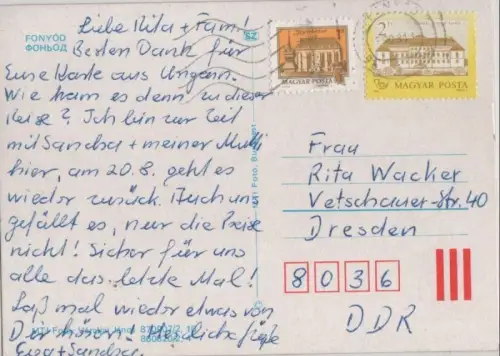 FONYÓD
ФОНЬОД
Liebe Rita + Fam!
Besten Dank für
Eure Karte aus Ungarn.
Wie kam es denn zu dieser
Reise? Ich bin zur Zeit
mit Sandra + meiner Mutti
hier, am 20.8. geht es
wieder zurück. Auch uns
gefällt es, nur die Preise
nicht! Sicher für uns
alle das letzte Mal!
Laß mal wieder etwas von
Dir hören! Herzliche Grüße
Eure + Sandra
SZ
MAGYAR POSTA
MAGYAR POSTA
Frau
Rita Wacker
Vetschauer-Str. 40
Dresden
8036
DDR